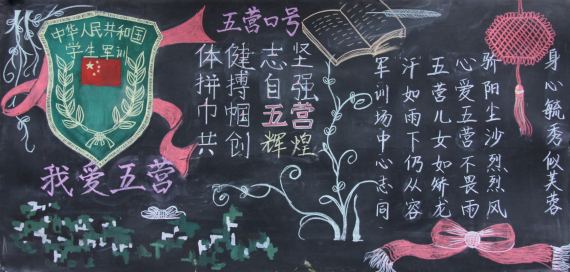 中华人民共和国
学生军训
我爱五营
五营口号
体健志坚
拼搏自强
巾帼五营
共创辉煌
身心毓秀似芙蓉
骄阳尘沙烈烈风
心爱五营不畏雨
五营儿女如矫龙
汗如雨下仍从容
军训场中心志同